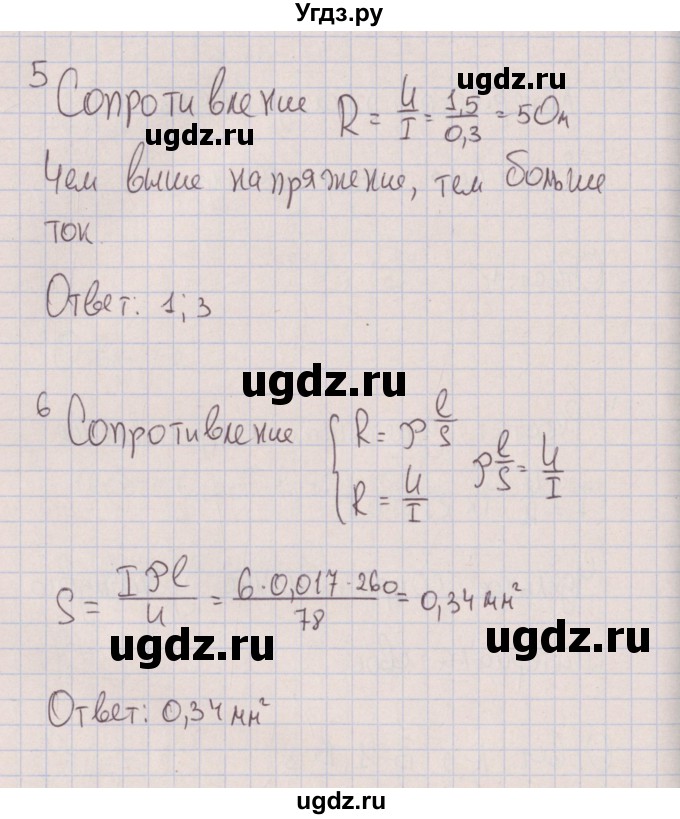 Угдз.ру
5 Сопротивление R = U/I = 1,5/0,3 = 5Ом
ugdz.ru
ugdz.ru
Чем выше напряжение, тем больше
ток
Ответ: 1; 3
ugdz.ru
6 Сопротивление { R = ρ l/S ρ l/S = U/I
R = U/I
S = Iρl/U = 6·0,017·260/78 = 0,34 мм²
ugdz.ru
ugdz.ru
Ответ: 0,34 мм²
ugdz.ru